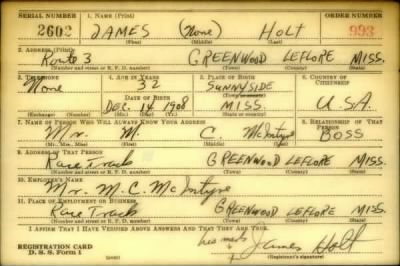 SERIAL NUMBER 1. NAME (Print) ORDER NUMBER
2602 JAMES (None) HOLT 993
(First) (Middle) (Last)
2. ADDRESS (Print)
Route 3 GREENWOOD LEFLORE MISS.
(Number and street or R. F. D. number) (Town) (County) (State)
3. TELEPHONE 4. AGE IN YEARS 5. PLACE OF BIRTH 6. COUNTRY OF CITIZENSHIP
None 32 SUNNYSIDE
DATE OF BIRTH (Town or county)
DEC. 14 1908 MISS. U.S.A.
(Exchange) (Number) (Mo.) (Day) (Yr.) (State or country)
7. NAME OF PERSON WHO WILL ALWAYS KNOW YOUR ADDRESS 8. RELATIONSHIP OF THAT PERSON
Mr. M. C. McIntyre BOSS
(Mr., Mrs., Miss) (First) (Middle) (Last)
9. ADDRESS OF THAT PERSON
Race Track GREENWOOD LEFLORE MISS.
(Number and street or R. F. D. number) (Town) (County) (State)
10. EMPLOYER'S NAME
Mr. M. C. McIntyre
11. PLACE OF EMPLOYMENT OR BUSINESS
Race Track GREENWOOD LEFLORE MISS.
(Number and street or R. F. D. number) (Town) (County) (State)
I AFFIRM THAT I HAVE VERIFIED ABOVE ANSWERS AND THAT THEY ARE TRUE.
REGISTRATION CARD his mark James Holt
D. S. S. Form 1 (Registrant's signature)